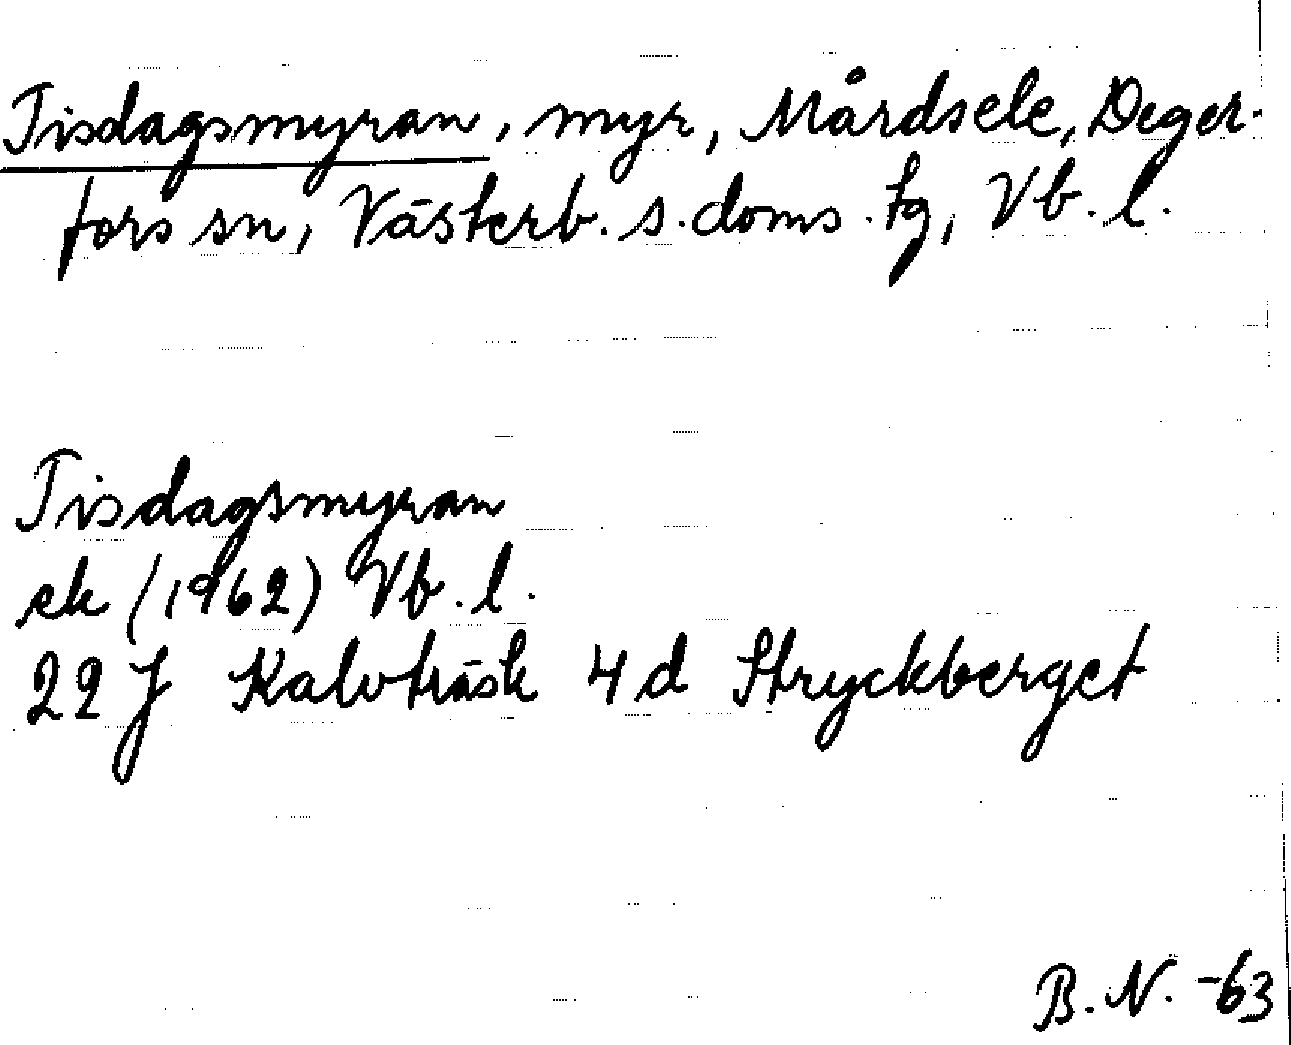 Tisdagsmyran, myr, Mårdsele, Deger-
fors sn, Västerb. s. doms. tg, Vb. l.
Tisdagsmyran
ek (1962) Vb. l.
22 J Kalvträsk 4d Stryckberget
B. N. -63